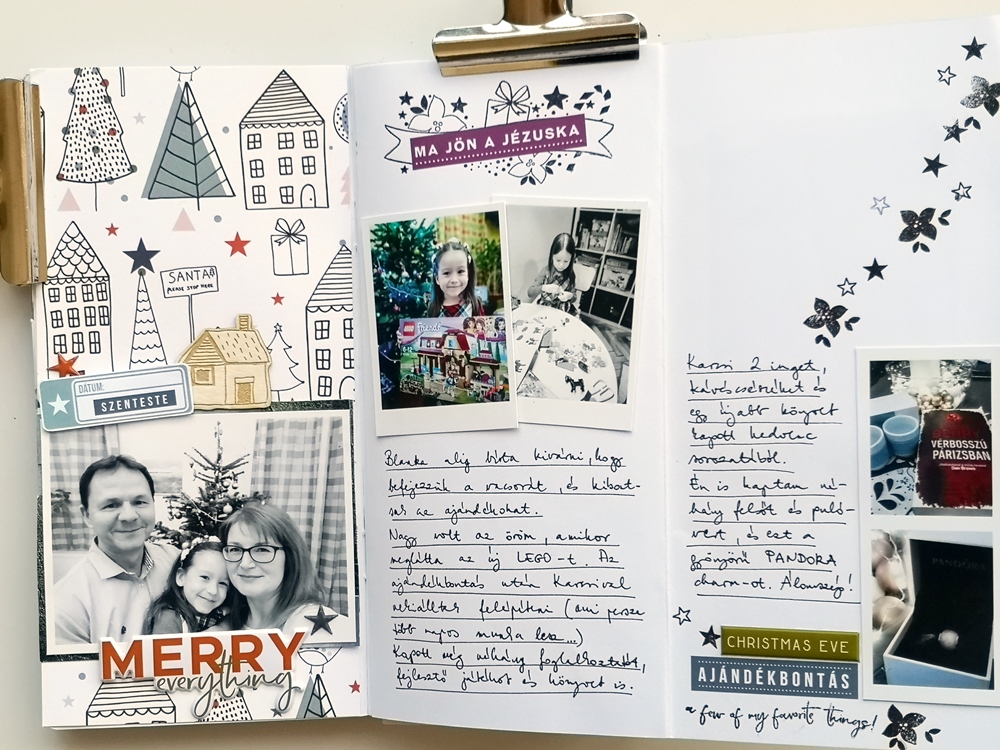 SANTA
PLEASE STOP HERE
DÁTUM:
SZENTESTE
MERRY
everything
MA JÖN A JÉZUSKA
LEGO friends
6-12
Blanka alig bírta kivárni, hogy
befejezzük a vacsorát, és kibont-
sa az ajándékokat.
Nagy volt az öröm, amikor
meglátta az új LEGO-t. Az
ajándékbontás után Karsival
nekiálltak felépíteni (ami persze
több napos munka lesz...)
Kapott még néhány foglalkoztatót,
fejlesztő játékot és könyvet is.
Karsi 2 inget,
kávéscsészéket és
egy újabb könyvet
kapott kedvenc
sorozatából.
Én is kaptam né-
hány felsőt és puló-
vert, és ezt a
gyönyörű PANDORA
charm-ot. Álomszép!
VÉRBOSSZÚ
PÁRIZSBAN
Dan Brown
PANDORA
CHRISTMAS EVE
AJÁNDÉKBONTÁS
a few of my favorite things!